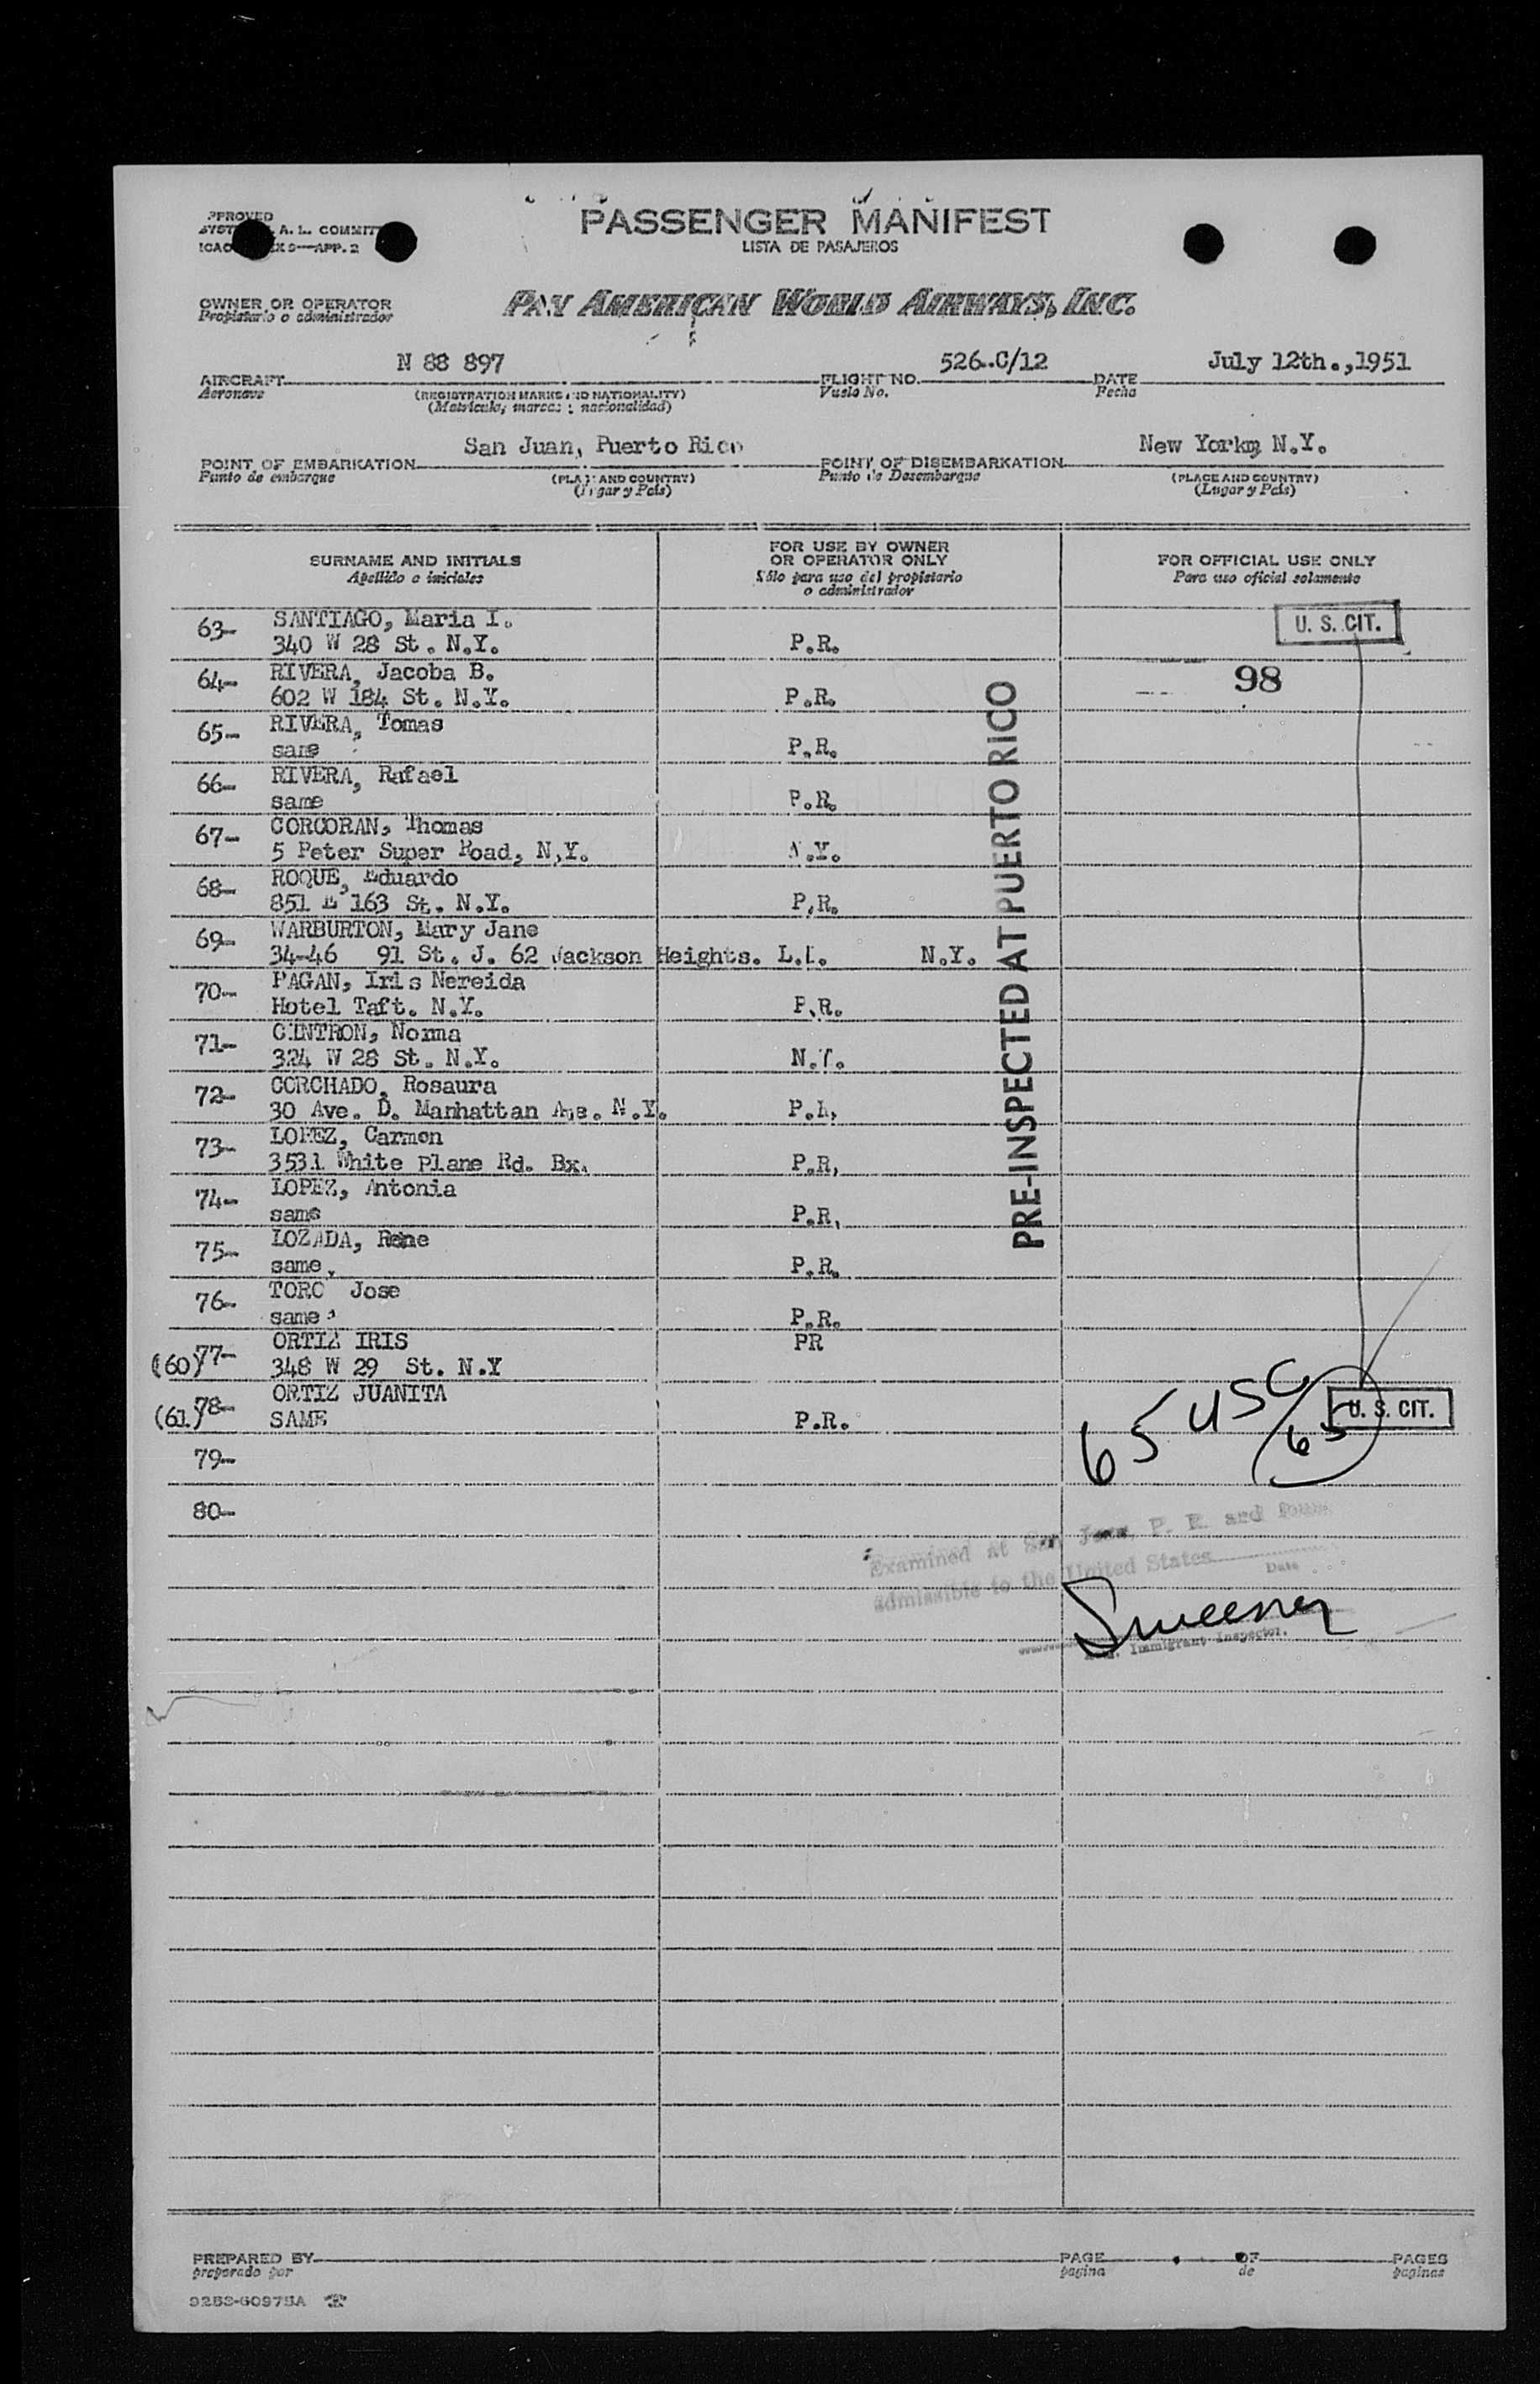 PASSENGER MANIFEST
LISTA DE PASAJEROS
A. L. COMMITT
APP. 2
OWNER OR OPERATOR
Propietario o administrador
PAN AMERICAN WORLD AIRWAYS, INC.
AIRCRAFT N 88 897 FLIGHT NO. 526-C/12 DATE July 12th.,1951
Aeronave (REGISTRATION MARKS AND NATIONALITY) Vuelo No. Fecha
(Matricula, marcas y nacionalidad)
POINT OF EMBARKATION San Juan, Puerto Rico POINT OF DISEMBARKATION New York, N.Y.
Punto de embarque (PLACE AND COUNTRY) Punto de Desembarque (PLACE AND COUNTRY)
(Lugar y Pais) (Lugar y Pais)
SURNAME AND INITIALS FOR USE BY OWNER OR OPERATOR ONLY FOR OFFICIAL USE ONLY
Apellido e iniciales Sólo para uso del propietario o administrador Para uso oficial solamente
63- SANTIAGO, Maria I. U. S. CIT.
340 W 28 St. N.Y. P.R.
64- RIVERA, Jacoba B. 98
602 W 184 St. N.Y. P.R.
65- RIVERA, Tomas
same P.R.
66- RIVERA, Rafael
same P.R.
67- CORCORAN, Thomas
5 Peter Super Road, N.Y. N.Y.
68- ROQUE, Eduardo
851 E 163 St. N.Y. P.R.
69- WARBURTON, Mary Jane
34-46 91 St. J. 62 Jackson Heights. L.I. N.Y.
70- PAGAN, Iris Nereida
Hotel Taft. N.Y. P.R.
71- CINTRON, Norma
324 W 28 St. N.Y. N.Y.
72- CORCHADO, Rosaura
30 Ave. D. Manhattan N.Y. P.R.
73- LOPEZ, Carmen
3531 White Plane Rd. Bx. P.R.
74- LOPEZ, Antonia
same P.R.
75- LOZADA, Rene
same. P.R.
76- TORO Jose
same P.R.
77- ORTIZ IRIS PR
(60) 348 W 29 St. N.Y
78- ORTIZ JUANITA
(61) SAME P.R.
79-
80-
PRE-INSPECTED AT PUERTO RICO
65 USC 65 U. S. CIT.
Examined at San Juan, P. R. and
admissible to the United States
Date
Sweeney
Immigrant Inspector.
PREPARED BY PAGE OF PAGES
preparado por pagina de paginas